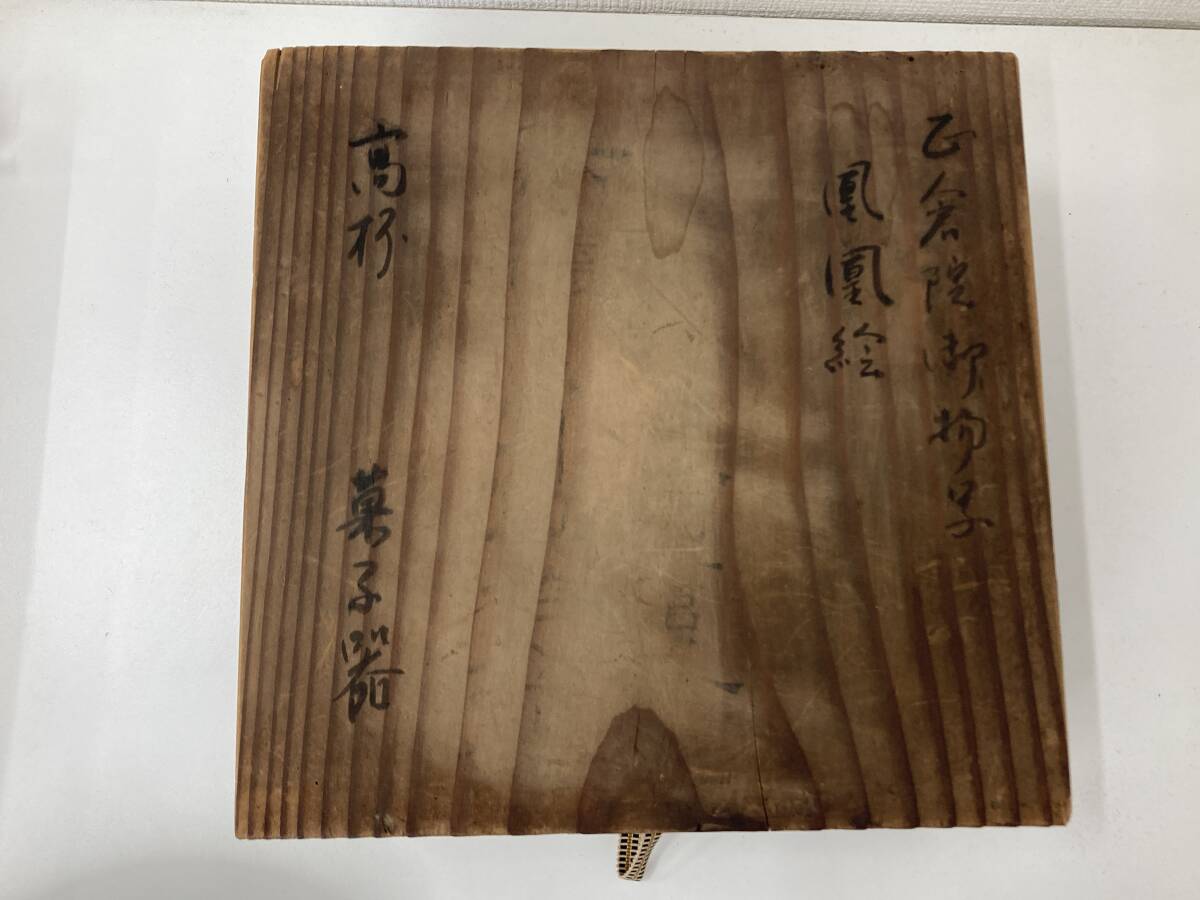 正倉院御物写
鳳凰絵
高杯 菓子器